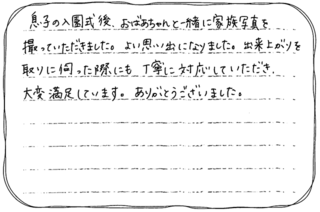 息子の入園式後、おばあちゃんと一緒に家族写真を
撮っていただきました。よい思い出になりました。出来上がりを
取りに伺った際にも丁寧に対応していただき、
大変満足しています。ありがとうございました。